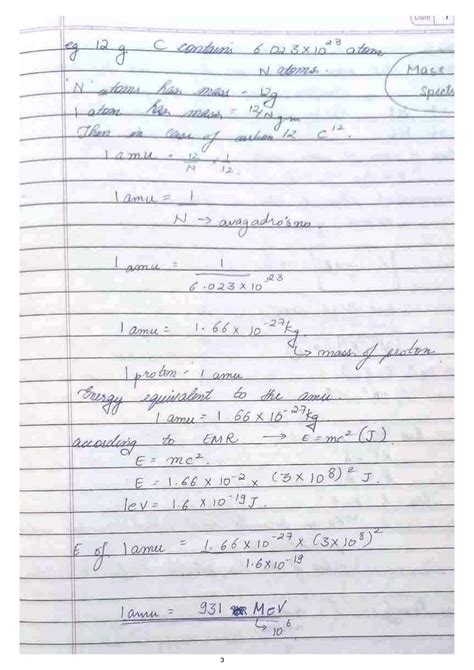 Date
eg 12 g C contains 6.023×10²³ atom
N atoms.
Mass
Spect
'N' atoms has mass = 12g
1 atom has mass = 12/N gm
Then in case of carbon 12 C¹².
1 amu = 12/N × 1/12.
1 amu = 1/N → avagadro's no.
1 amu = 1/6.023×10²³
1 amu = 1.66 × 10⁻²⁷ kg
↳ mass of proton
1 proton = 1 amu
Energy equivalent to the amu.
1 amu = 1.66 × 10⁻²⁷ kg
according to EMR → E = mc² (J)
E = mc².
E = 1.66 × 10⁻² × (3×10⁸)² J.
1eV = 1.6 × 10⁻¹⁹ J.
E of 1 amu = 1.66 × 10⁻²⁷ × (3×10⁸)²/1.6×10⁻¹⁹
1 amu = 931 MeV
↳ 10⁶
3